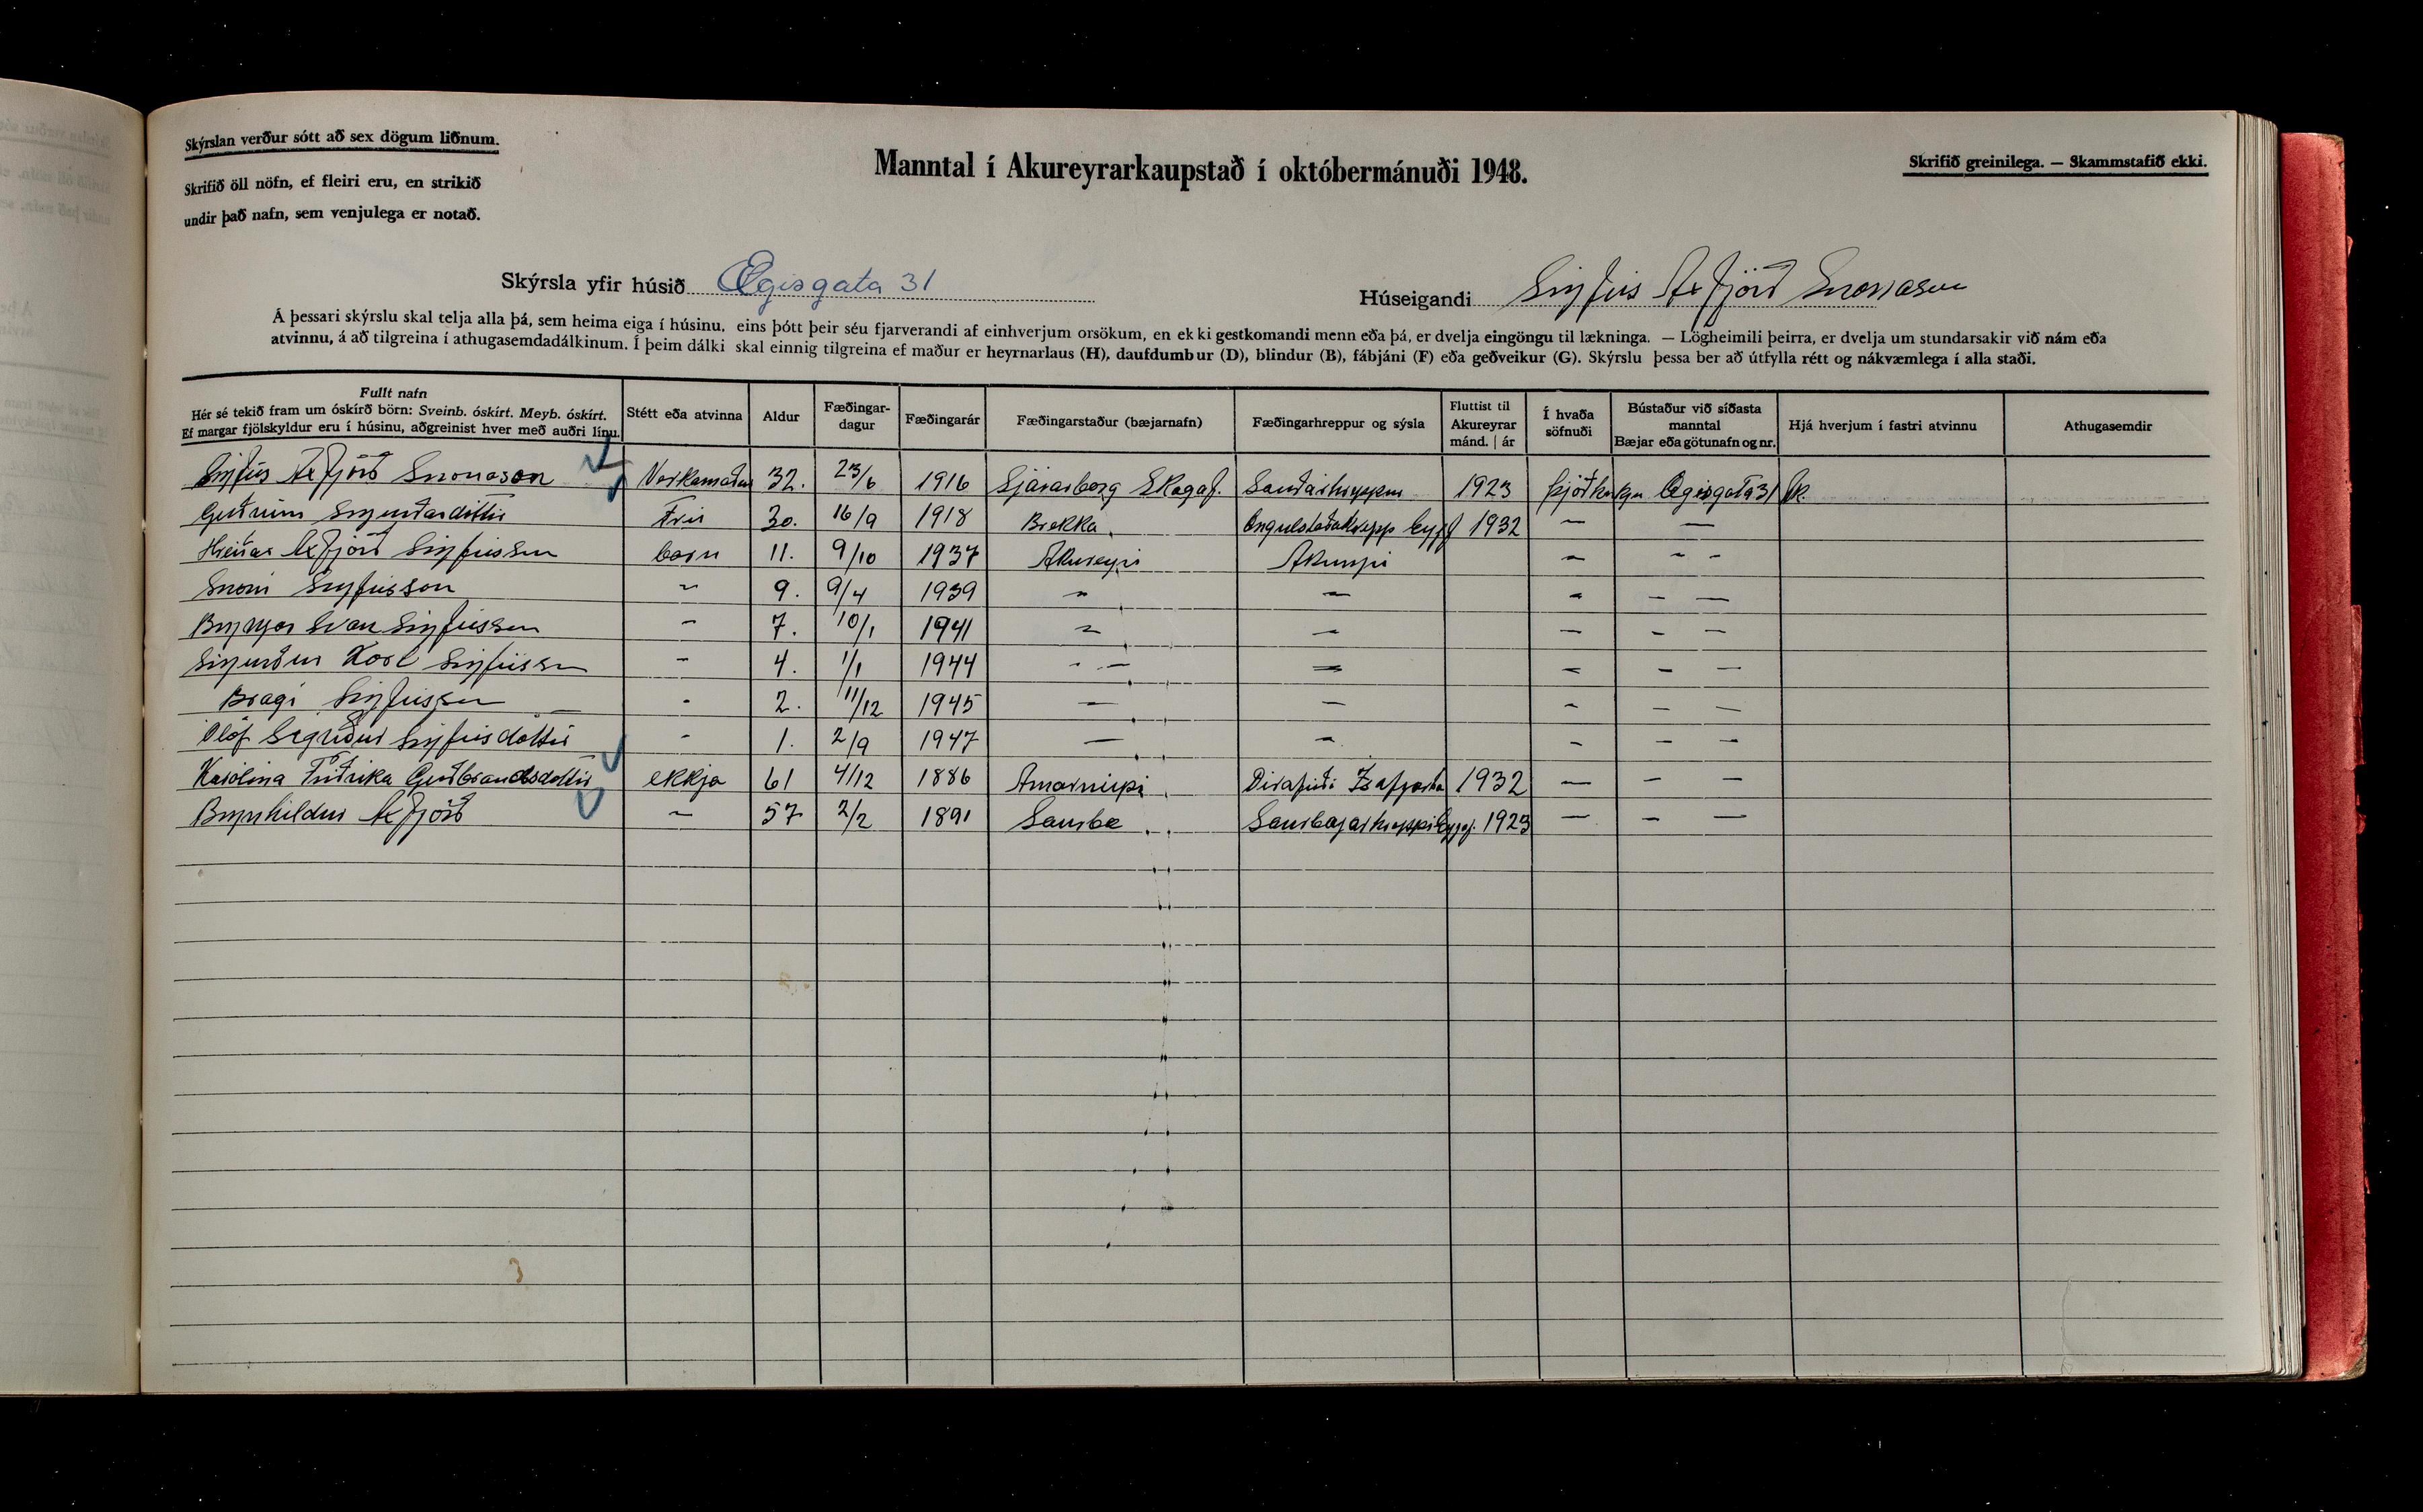 Skýrslan verður sótt að sex dögum liðnum.
Skrifið öll nöfn, ef fleiri eru, en strikið
undir það nafn, sem venjulega er notað.
Manntal í Akureyrarkaupstað í októbermánuði 1948.
Skrifið greinilega. — Skammstafið ekki.
Skýrsla yfir húsið Ægisgata 31
Húseigandi Sigfús Axfjörð Snorrason
Á þessari skýrslu skal telja alla þá, sem heima eiga í húsinu, eins þótt þeir séu fjarverandi af einhverjum orsökum, en ekki gestkomandi menn eða þá, er dvelja eingöngu til lækninga. — Lögheimili þeirra, er dvelja um stundarsakir við nám eða
atvinnu, á að tilgreina í athugasemdadálkinum. Í þeim dálki skal einnig tilgreina ef maður er heyrnarlaus (H), daufdumbur (D), blindur (B), fábjáni (F) eða geðveikur (G). Skýrslu þessa ber að útfylla rétt og nákvæmlega í alla staði.
Fullt nafn
Hér sé tekið fram um óskírð börn: Sveinb. óskírt. Meyb. óskírt.
Ef margar fjölskyldur eru í húsinu, aðgreinist hver með auðri línu.
Stétt eða atvinna
Aldur
Fæðingar-
dagur
Fæðingarár
Fæðingarstaður (bæjarnafn)
Fæðingarhreppur og sýsla
Fluttist til
Akureyrar
mánd. | ár
Í hvaða
söfnuði
Bústaður við síðasta
manntal
Bæjar eða götunafn og nr.
Hjá hverjum í fastri atvinnu
Athugasemdir
Sigfús Axfjörð Snorrason Verkamaður 32. 23/6 1916 Sjávarborg Skagaf. Sauðárhreppur 1923 Þjóðkirkju Ægisgata 31 Ak.
Guðrún Sigurðardóttir Frú 30. 16/9 1918 Brekka Öngulstaðahrepp Eyjf 1932 — —
Hreiðar Axfjörð Sigfússon barn 11. 9/10 1937 Akureyri Akureyri — – –
Snorri Sigfússon – 9. 9/4 1939 – – – – —
Brynjar Svan Sigfússon – 7. 10/1 1941 – – – – –
Sigurður Karl Sigfússon – 4. 1/1 1944 – – – – –
Bragi Sigfússon - 2. 11/12 1945 – – – – –
Ólöf Sigríður Sigfúsdóttir - 1. 2/9 1947 — – – – –
Karólína Friðrika Guðbrandsdóttir ekkja 61 4/12 1886 Dírafirði Ísafjarða 1932 — – –
Brynhildur Axfjörð – 57 2/2 1891 Saurbæ Saurbæjarhreppi Eyjaf. 1923 — – —